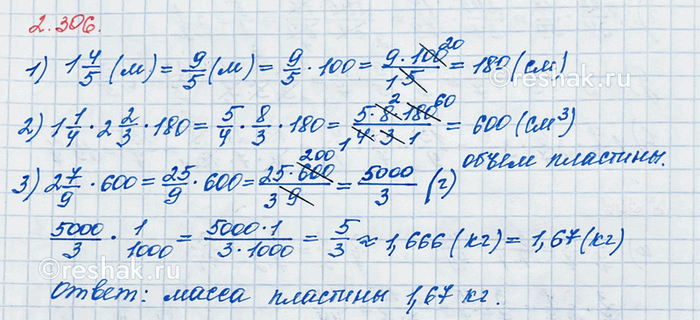 2.306.
1) 1 4/5 (м) = 9/5 (м) = 9/5 · 100 = 9 · 100 20 / 1 5 = 180 (см)
2) 1 1/4 · 2 2/3 · 180 = 5/4 · 8/3 · 180 = 5 · 8 2 · 180 60 / 1 4 · 3 1 = 600 (см³)
объем пластины.
3) 2 7/9 · 600 = 25/9 · 600 = 25 · 600 200 / 3 9 = 5000/3 (г)
5000/3 · 1/1000 = 5000 · 1 / 3 · 1000 = 5/3 ≈ 1,666 (кг) = 1,67 (кг)
Ответ: масса пластины 1,67 кг.
©reshak.ru
©reshak.ru